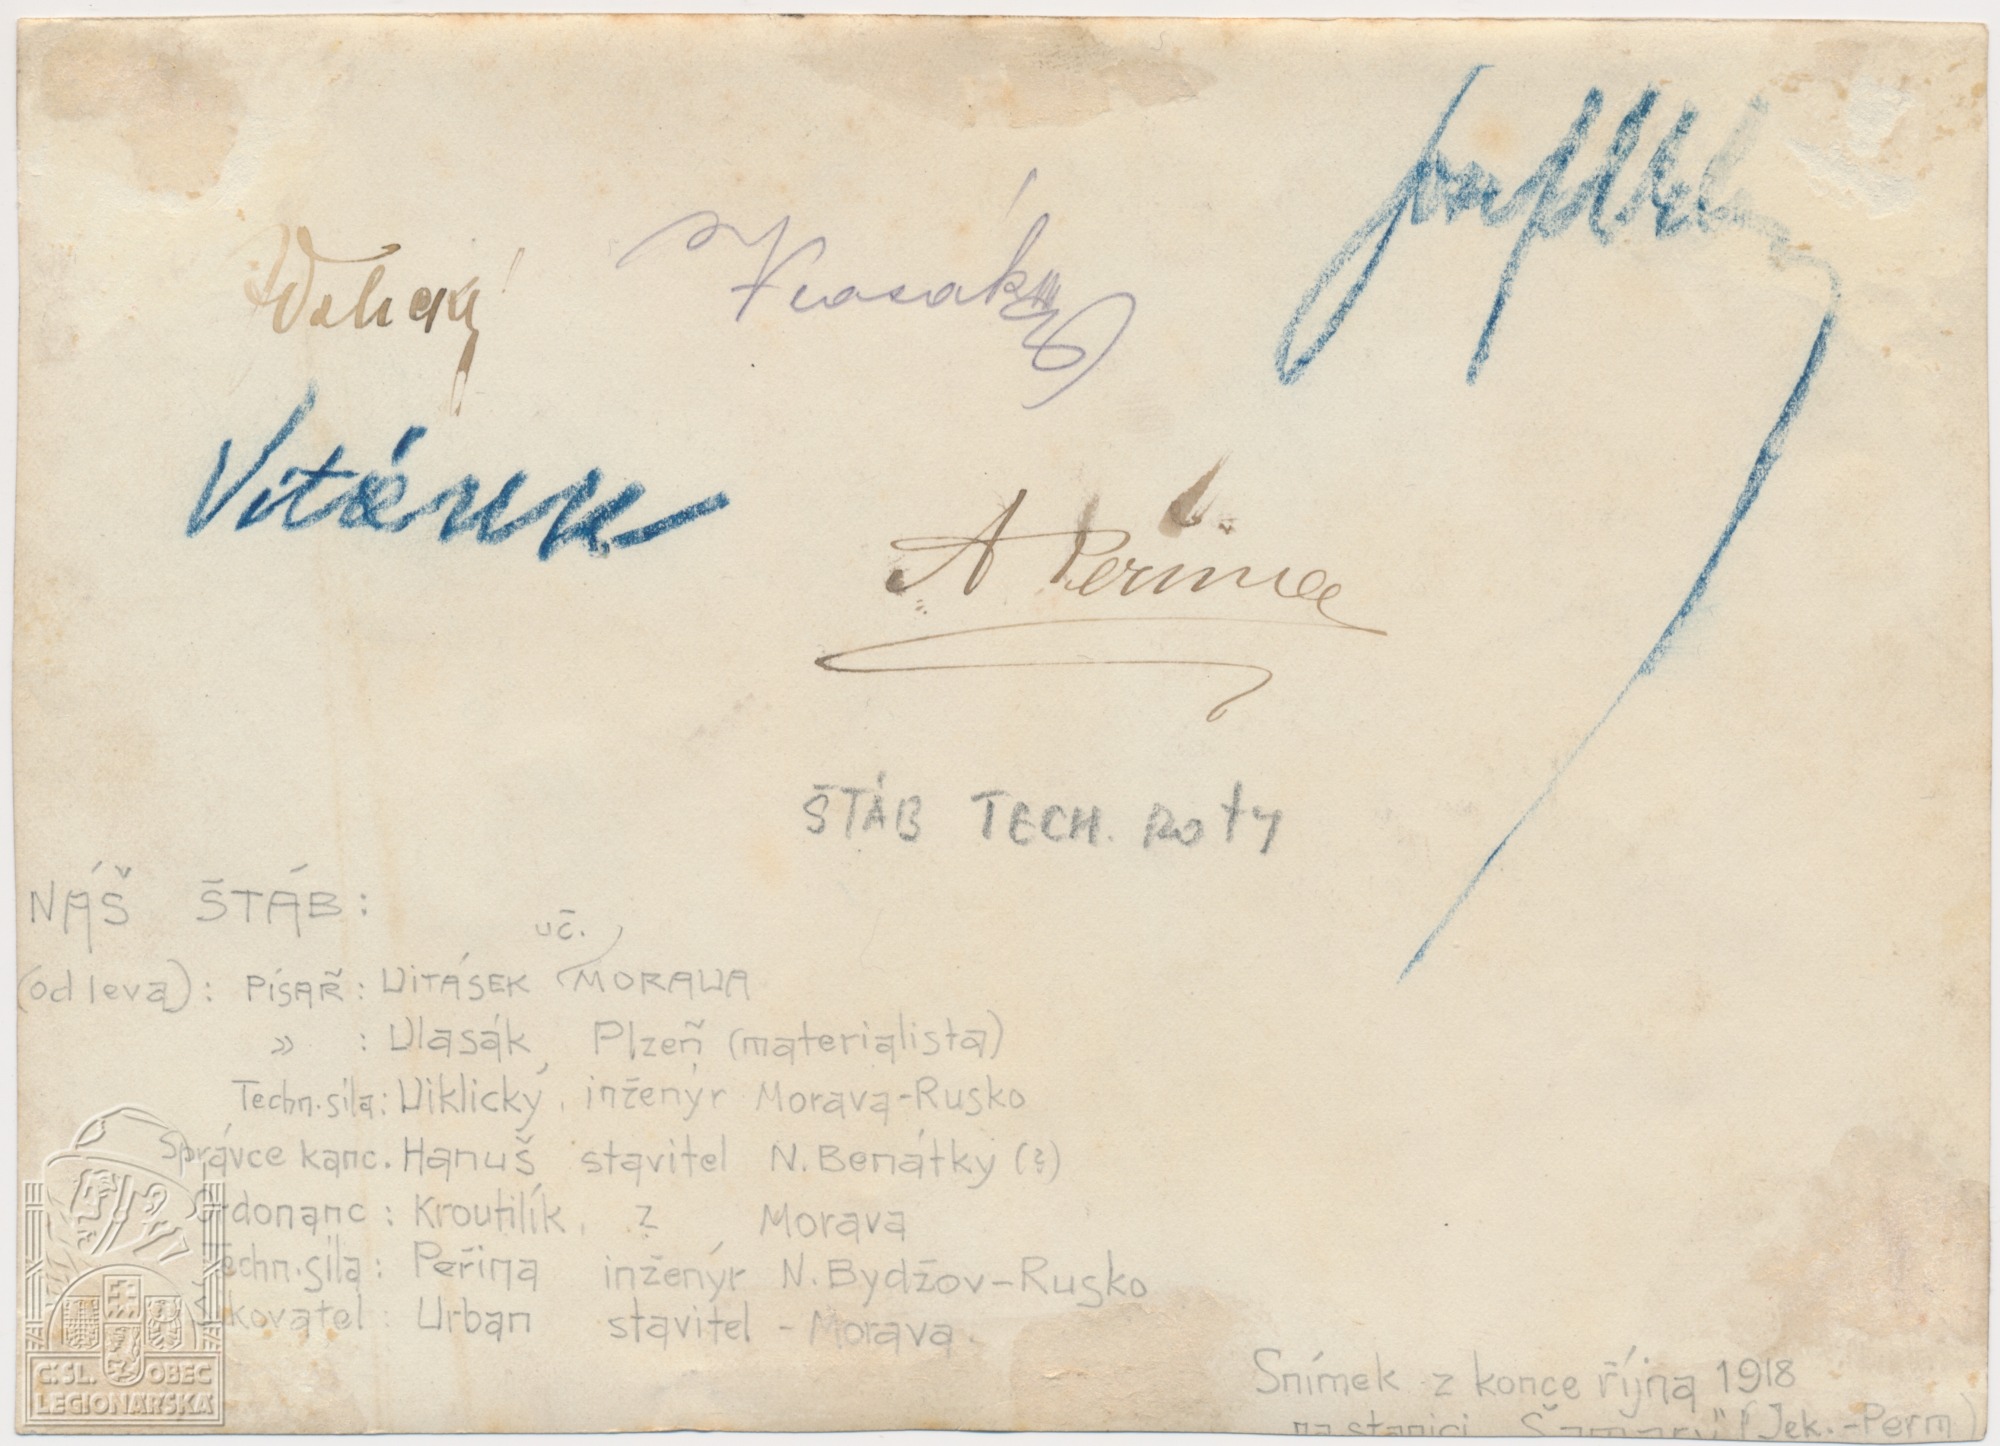 Vlasák
Vitásek
A Peřina
ŠTÁB TECH. ROTY
NÁŠ ŠTÁB:
uč.
(od leva): PÍSAŘ: VITÁSEK MORAVA
» : Vlasák, Plzeň (materialista)
Techn. síla: Viklický, inženýr Morava-Rusko
Správce kanc. Hanuš stavitel N. Benátky (?)
Ordonanc: Kroutilík, ? Morava
Techn. síla: Peřina inženýr N. Bydžov-Rusko
Šikovatel: Urban stavitel - Morava.
Snímek z konce října 1918
na stanici „Šamary" (Jek.-Perm)
Č.SL. OBEC
LEGIONÁŘSKÁ